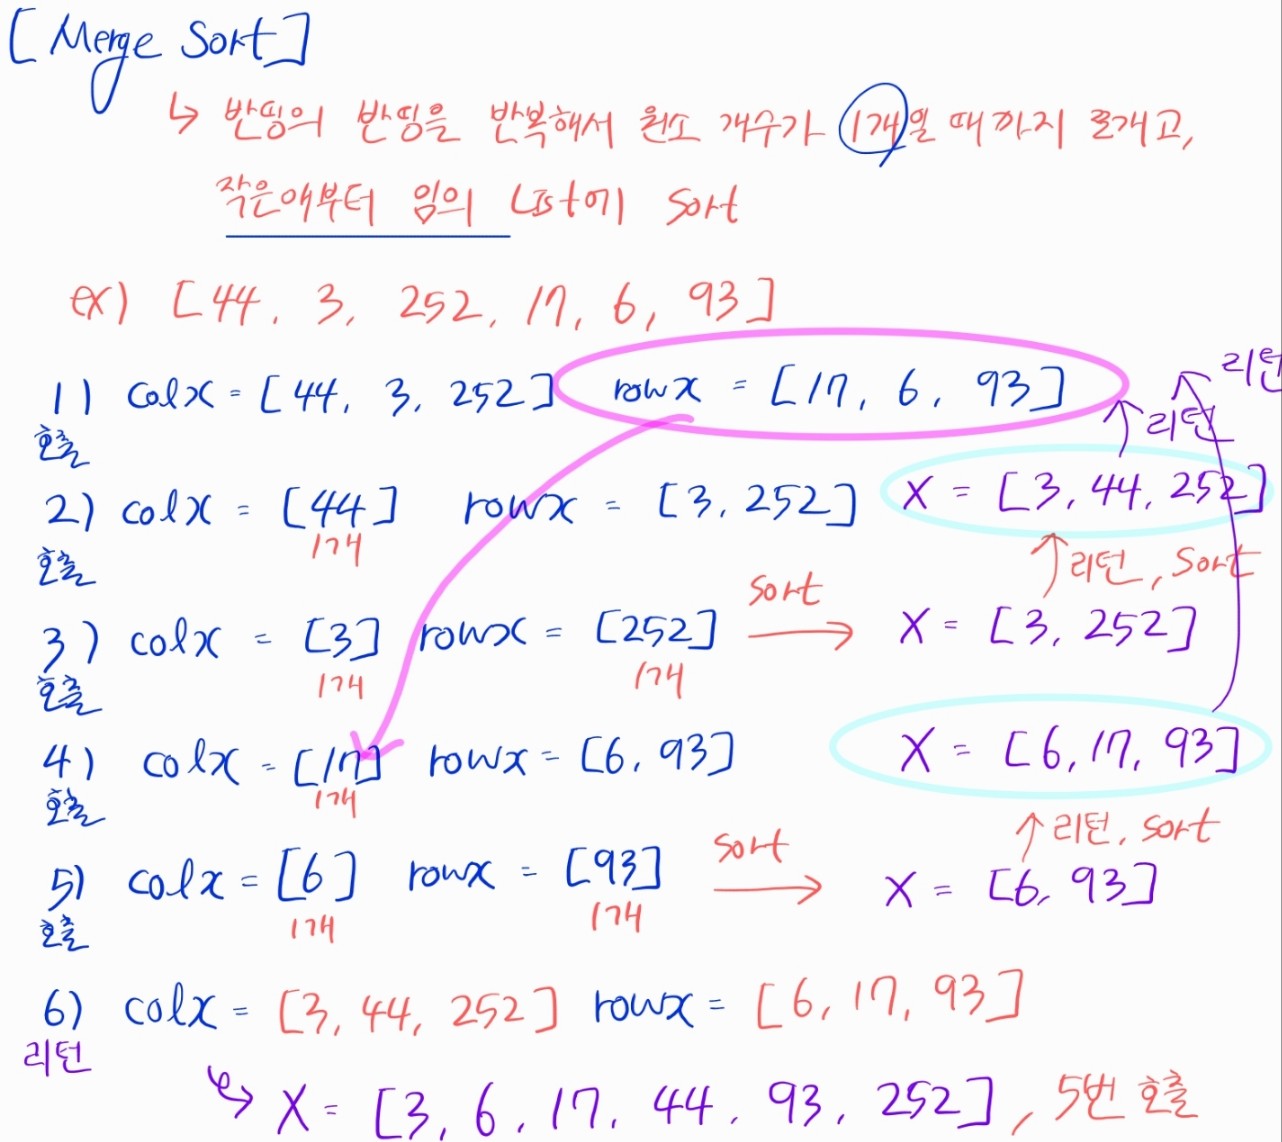 [Merge Sort]
↳ 반띵의 반띵을 반복해서 원소 개수가 1개일 때까지 쪼개고,
작은애부터 임의 List에 Sort
ex) [44, 3, 252, 17, 6, 93]
1) colx = [44, 3, 252] rowx = [17, 6, 93] 리턴
호출 ↑리턴
2) colx = [44] rowx = [3, 252] X = [3, 44, 252]
호출 1개 ↑리턴, Sort
3) colx = [3] rowx = [252] Sort → X = [3, 252]
호출 1개 1개
4) colx = [17] rowx = [6, 93] X = [6, 17, 93]
호출 1개 ↑리턴, Sort
5) colx = [6] rowx = [93] Sort → X = [6, 93]
호출 1개 1개
6) colx = [3, 44, 252] rowx = [6, 17, 93]
리턴
↳ X = [3, 6, 17, 44, 93, 252], 5번 호출